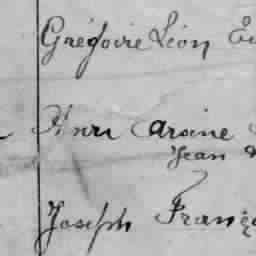 Grégoire Léon
Henri Arsène
Jean
Joseph